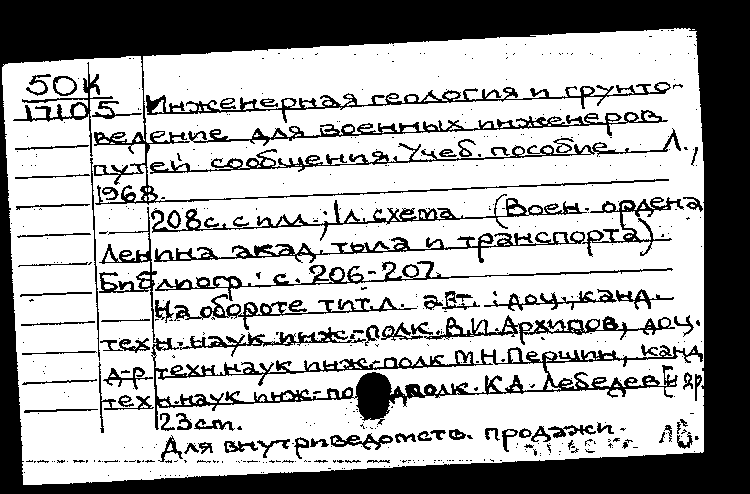 50К
17105 Инженерная геология и грунто-
ведение для военных инженеров
путей сообщения. Учеб. пособие. Л.,
1968.
208с. с илл.; 1л. схема (Воен. ордена
Ленина акад. тыла и транспорта).
Библиогр.: с. 206-207.
На обороте тит.л. авт.: доц., канд.
техн. наук инж.-полк. В.И. Архипов, доц.
д-р техн. наук инж.-полк М.Н. Першин, канд
техн. наук инж-по полк. К.А. Лебедев [и др
23см.
Для внутриведомств. продажи. 1б.